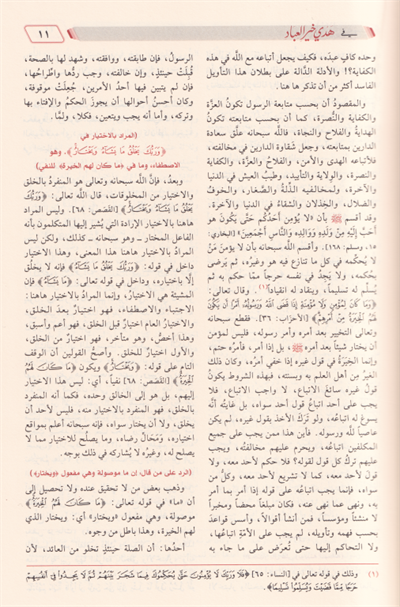 في هدي خير العباد
١١
وحده كافٍ عبده، فكيف يجعل أتباعه مع الله في هذه
الكفاية؟! والأدلة الدالة على بطلان هذا التأويل
الفاسد أكثر من أن تذكر ها هنا.
والمقصود أن بحسب متابعة الرسول تكون العزَّة
والكفاية والنُّصرة، كما أن بحسب متابعته تكونُ
الهداية والفلاح والنجاة، فالله سبحانه علَّق سعادة
الدارين بمتابعته، وجعل شقاوة الدارين في مخالفته،
فلأتباعه الهدى والأمن، والفلاحُ والعزَّة، والكفاية
والنصرة، والولاية والتأييد، وطيبُ العيش في الدنيا
والآخرة، ولمخالفيه الذِّلةُ والصَّغار، والخوفُ
والضلال، والخِذلان والشقاءُ في الدنيا والآخرة.
وقد أقسم ﷺ بأن «لا يُؤمِنَ أَحَدُكُم حَتَّى يَكونَ هو
أحبَّ إليْهِ مِنْ ولَدِهِ ووالِدِه والنَّاسِ أجْمَعِين» [البخاري:
١٥، ومسلم: ١٦٨]. وأقسم الله سبحانه بأن لا يؤمنَ مَنْ
لا يُحكِّمه في كل ما تنازع فيه هو وغيرُه، ثم يَرضى
بحُكمه، ولا يَجِدُ في نفسه حرجاً مما حكم به ثم
يُسلِّم له تسليماً، وينقاد له انقياداً(١). وقال تعالى:
﴿وَمَا كَانَ لِمُؤْمِنٍ وَلَا مُؤْمِنَةٍ إِذَا قَضَى اللَّهُ وَرَسُولُهُ أَمْرًا أَن يَكُونَ
لَهُمُ الْخِيَرَةُ مِنْ أَمْرِهِمْ﴾ [الأحزاب: ٣٦]. فقطع سبحانه
وتعالى التخيير بعد أمره وأمر رسوله، فليس لمؤمن
أن يختار شيئاً بعد أمره ﷺ، بل إذا أمر، فأمره حَتْم،
وإنما الخِيَرَةُ في قول غيره إذا خفي أمرُه، وكان ذلك
الغيرُ مِن أهل العلم به وبسنته، فبهذه الشروط يكونُ
قولُ غيره سائغ الاتباع، لا واجب الاتباع، فلا
يجب على أحد اتباعُ قول أحد سواه، بل غايتُه أنَّه
يسوغ له اتباعُه، ولو تَرَكَ الأخذ بقول غيره، لم يكن
عاصياً لله ورسوله. فأين هذا ممن يجب على جميع
المكلفين اتباعُه، ويحرم عليهم مخالفتُه، ويجب
عليهم تركُ كل قول لقوله؟ فلا حكم لأحد معه، ولا
قولَ لأحد معه، كما لا تشريع لأحد معه، وكلُّ من
سواه، فإنما يجب اتباعُه على قوله إذا أمر بما أمر
به، ونهى عما نهى عنه، فكان مبلِّغاً محضاً ومخبراً
لا منشئاً ومؤسساً، فمن أنشأ أقوالاً، وأسس قواعدَ
بحسب فهمه وتأويله، لم يجب على الأمَّةِ اتباعُها،
ولا التحاكم إليها حتى تُعرَضَ على ما جاء به
الرسولُ، فإن طابقته، ووافقته، وشهد لها بالصحة،
قُبِلَتْ حينئذٍ، وإن خالفته، وجب ردُّها واطِّراحُها،
فإن لم يتبين فيها أحدُ الأمرين، جُعِلَت موقوفة،
وكان أحسنُ أحوالها أن يجوز الحكمُ والإفتاء بها
وتركه، وأما أنه يجب ويتعين، فكلا، ولمَّا.
(المراد بالاختيار في
﴿وَرَبُّكَ يَخْلُقُ مَا يَشَاءُ وَيَخْتَارُ﴾، وهو
الاصطفاء، وما هي ﴿ما كان لهم الخيرة﴾ للنفي)
وبعدُ، فإنَّ الله سبحانه وتعالى هو المنفردُ بالخلق
والاختيار من المخلوقات، قال الله تعالى: ﴿وَرَبُّكَ
يَخْلُقُ مَا يَشَاءُ وَيَخْتَارُ﴾ [القصص: ٦٨]. وليس المراد
هاهنا بالاختيار الإرادة التي يُشير إليها المتكلمون بأنه
الفاعل المختار ـ وهو سبحانه ـ كذلك، ولكن ليس
المرادُ بالاختيار هاهنا هذا المعنى، وهذا الاختيار
داخل في قوله: ﴿يَخْلُقُ مَا يَشَاءُ﴾، فإنه لا يخلُق
إلّا باختياره، وداخل في قوله تعالى: ﴿مَا يَشَاءُ﴾ فإن
المشيئة هي الاختيارُ، وإنما المرادُ بالاختيار هاهنا:
الاجتباء والاصطفاء، فهو اختيارٌ بعدَ الخلق،
والاختيارُ العام اختيارٌ قبل الخلق، فهو أعم وأسبق،
وهذا أخصُّ، وهو متأخر، فهو اختيارٌ من الخلق،
والأول اختيارٌ للخلق. وأصحُّ القولين أن الوقف
التام على قوله: ﴿وَيَخْتَارُ﴾ ويكون ﴿مَا كَانَ لَهُمُ
الْخِيَرَةُ﴾ [القصص: ٦٨] نفياً، أي: ليس هذا الاختيار
إليهم، بل هو إلى الخالق وحده، فكما أنه المنفرد
بالخلق، فهو المنفرد بالاختيار منه، فليس لأحد أن
يخلق، ولا أن يختار سواه، فإنه سبحانه أعلم بمواقع
اختياره، ومَحَالِّ رضاه، وما يصلُح للاختيار مما لا
يصلح له، وغيرُه لا يُشاركه في ذلك بوجه.
(الرد على من قال: إن ما موصولة وهي مفعول «ويختار»)
وذهب بعض من لا تحقيق عنده ولا تحصيل إلى
أن «ما» في قوله تعالى: ﴿مَا كَانَ لَهُمُ الْخِيَرَةُ﴾
موصولة، وهي مفعول «ويختار» أي: ويختار الذي
لهم الخيرة، وهذا باطل من وجوه.
أحدُها: أن الصلة حينئذٍ تخلو من العائد، لأن
(١) وذلك في قوله تعالى في [النساء: ٦٥] ﴿فَلَا وَرَبِّكَ لَا يُؤْمِنُونَ حَتَّى يُحَكِّمُوكَ فِيمَا شَجَرَ بَيْنَهُمْ ثُمَّ لَا يَجِدُوا فِي أَنفُسِهِمْ
حَرَجًا مِمَّا قَضَيْتَ وَيُسَلِّمُوا تَسْلِيمًا﴾.